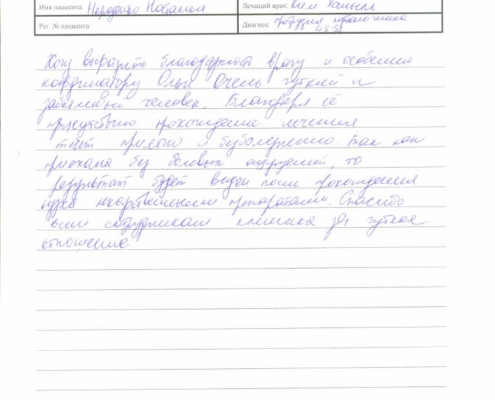 Имя пациента: Наталья
Лечащий врач: Ким Ханыль
Рег. № пациента
Диагноз: Протрузия позвоночника
Хочу выразить благодарность врачу и особенно
координатору Ольге Очень чуткий и
человек. Благодаря её
присутствию прохождение лечения
приятно и безболезненно. Так как
приехала без болевых ощущений, то
результат будет виден после прохождения
курса лекарственными препаратами. Спасибо
всем сотрудникам клиники за чуткое
отношение